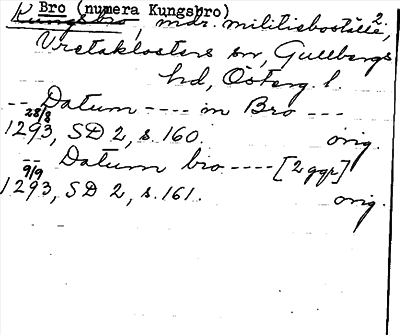 Bro (numera Kungsbro)
Kungsbro, mdr. militieboställe 2,
Vretaklosters sn, Gullbergs
hd, Österg. l.
-- Datum ---- in Bro ---
28/8
1293, SD 2, s. 160. orig.
-- Datum bro ---- [2 ggr]
9/9
1293, SD 2, s. 161. orig.